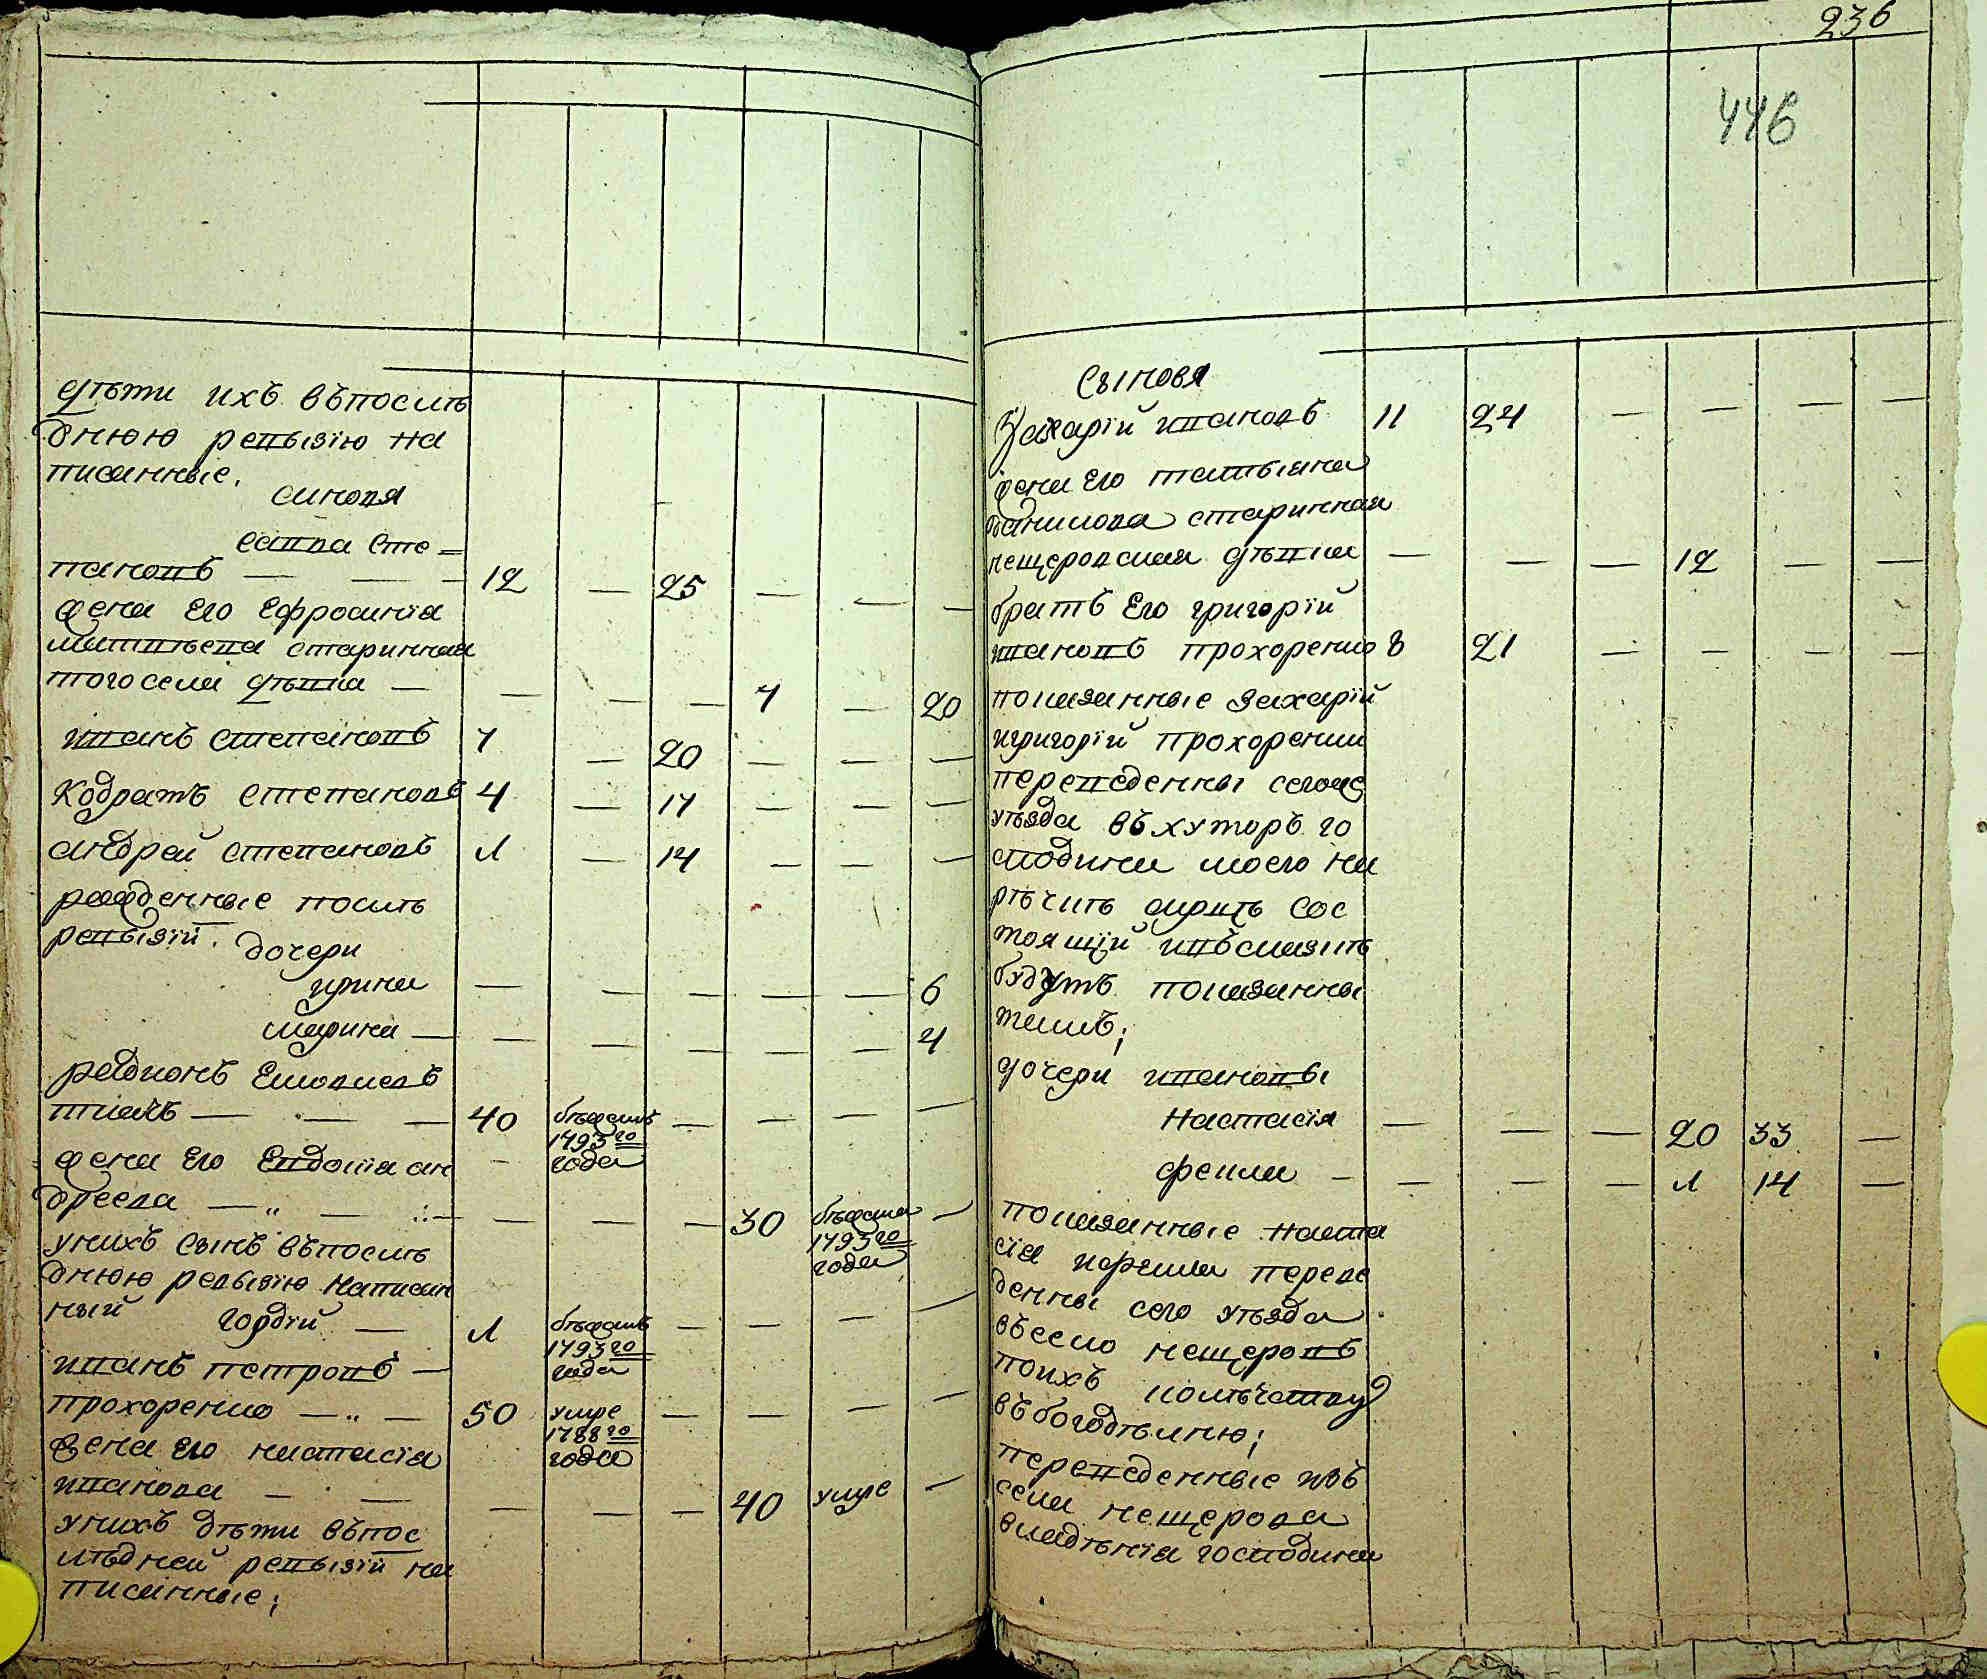 дѣти ихъ въпослѣ
днюю ревизїю на
писанные.
синовя
Савва Сте=
пановъ — — — 12 — 25 — — —
жена Его Ефросинїа
Матвѣева старинная
тогосела дѣвка — — — — 7 — 20
иванъ Степановъ 7 — 20 — — —
Кодратъ Степановъ 4 — 17 — — —
андрей Степановъ 1 — 14 — — —
рожденные послѣ
ревизїй. дочери
ирина — — — — — 6
марина — — — — — 4
радионъ
ткачъ — — — 40 бѣжалъ — — — —
1793го
года
жена Его Евдокїа ан
дреева — „ — — — — 30 бѣжала —
1793го
года
унихъ сынъ въпослѣ
днюю ревизїю написан
ный гордїй — 1 бѣжалъ — — — —
1793го
года
иванъ петровъ —
прохоренко — „ — 50 умре — — — —
1788го
года
жена Его настасїа
иванова — — — — — 40 умре —
унихъ дѣти въпос
лѣдней ревизїй на
писанные;
236
446
Сыновя
Захарїй ивановъ 11 24 — — — —
жена Его татьяна
данилова старинная
нещеровская дѣвка — — — 12 — —
братъ Его григорїй
ивановъ прохоренко 8 21 — — — —
показанные захарїй
игригорїй прохоренки
переведенны сегоже
уѣзда въ хуторъ го
сподина моего на
рѣчкѣ сос
тоящїй ивъсказкѣ
будутъ показанны
тамъ;
дочери ивановы
Настасїя — — — 20 33 —
фекла — — — — 1 14 —
показанные наста
сїа ифекла переве
денны сего уѣзда
въсело нещеровъ
поихъ
въбогодѣлню;
переведенные изъ
села нещерова
владѣнїа господина